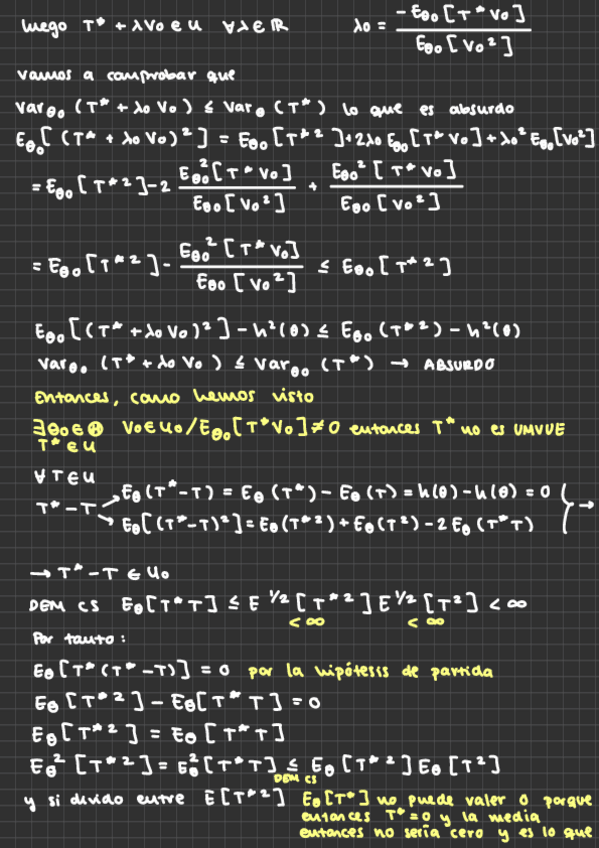 luego T* + λV0 ∈ U ∀λ∈ℝ λ0 = -Eθ0[T*V0] / Eθ0[V0²]
vamos a comprobar que
Varθ0 (T* + λ0 V0) ≤ Varθ (T*) lo que es absurdo
Eθ0[(T* + λ0 V0)²] = Eθ0[T*²] + 2λ0 Eθ0[T* V0] + λ0² Eθ0[V0²]
= Eθ0[T*²] - 2 Eθ0²[T* V0] / Eθ0[V0²] + Eθ0²[T* V0] / Eθ0[V0²]
= Eθ0[T*²] - Eθ0²[T* V0] / Eθ0[V0²] ≤ Eθ0[T*²]
Eθ0[(T* + λ0 V0)²] - h²(θ) ≤ Eθ0(T*²) - h²(θ)
Varθ0 (T* + λ0 V0) ≤ Varθ0 (T*) → ABSURDO
Entonces, como hemos visto
∃θ0∈Θ V0∈U0 / Eθ0[T*V0] ≠ 0 entonces T* no es UMVUE
T* ∈ U
∀T∈U
T* - T
Eθ(T*-T) = Eθ(T*) - Eθ(T) = h(θ) - h(θ) = 0
Eθ[(T*-T)²] = Eθ(T*²) + Eθ(T²) - 2Eθ(T*T) →
→ T* - T ∈ U0
DEM CS Eθ[T*T] ≤ E^1/2[T*²] E^1/2[T²] < ∞
< ∞ < ∞
Por tanto:
Eθ[T*(T*-T)] = 0 por la hipótesis de partida
Eθ[T*²] - Eθ[T* T] = 0
Eθ[T*²] = Eθ[T*T]
Eθ²[T*²] = Eθ²[T*T] ≤ Eθ[T*²] Eθ[T²]
DEM CS
y si divido entre E[T*²] Eθ[T*] no puede valer 0 porque
entonces T*=0 y la media
entonces no sería cero y es lo que